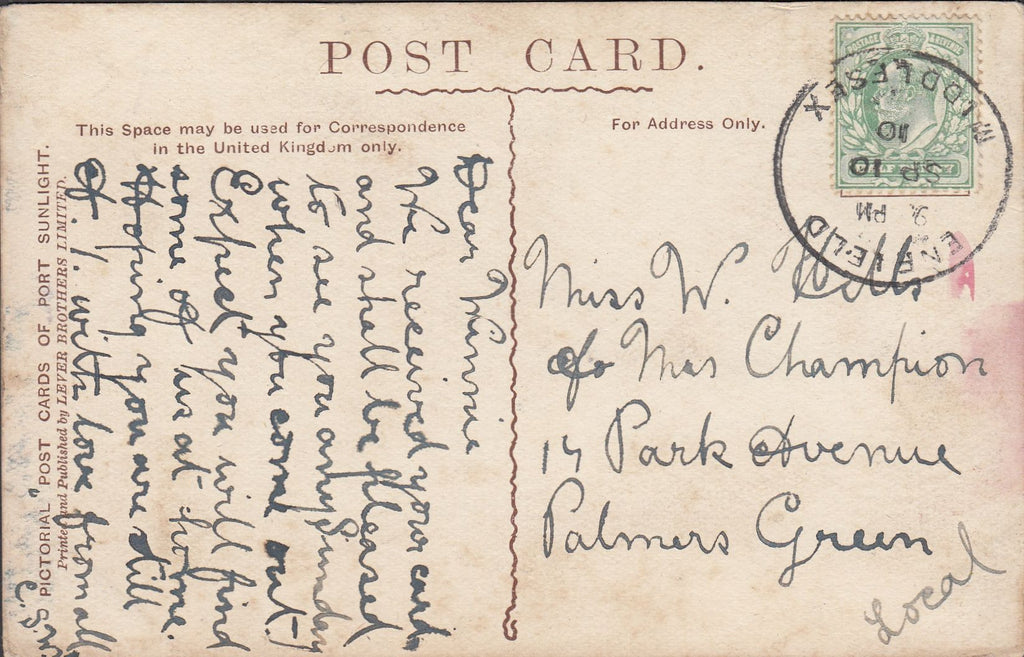 POST CARD.
This Space may be used for Correspondence
in the United Kingdom only.
For Address Only.
MIDDLESEX
10
SP 10
9. PM
ENFIELD
Dear Winnie
We received your card
and shall be pleased
to see you any Sunday
when you come out.
Expect you will find
some of us at home.
Hoping you are still
with love from all
Miss W.
c/o Mrs Champion
Park Avenue
Palmers Green
Local
PICTORIAL POST CARDS OF PORT SUNLIGHT.
Printed and Published by LEVER BROTHERS LIMITED.